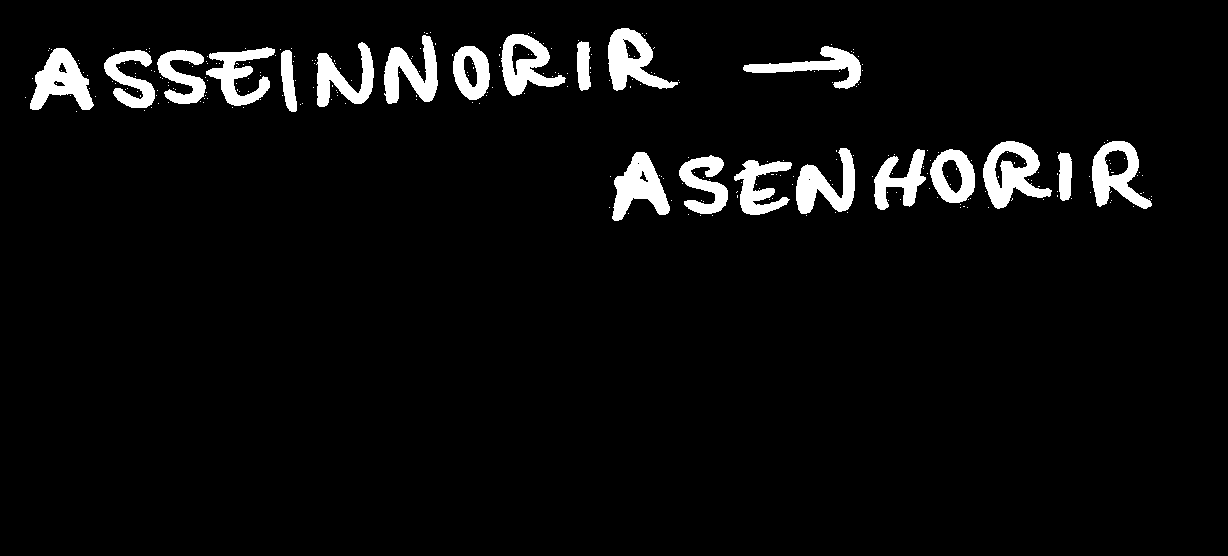 ASSEINNORIR →
ASENHORIR